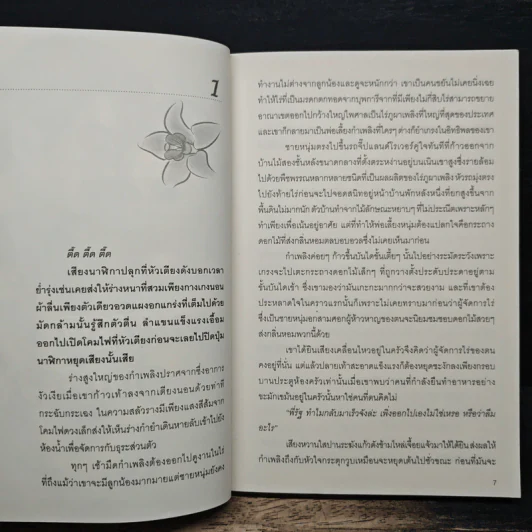 1
ติ๊ด ติ๊ด ติ๊ด
เสียงนาฬิกาปลุกที่หัวเตียงดังบอกเวลา
ย่ำรุ่งเช่นเคยส่งให้ร่างหนาที่สวมเพียงกางเกงนอน
ผ้าลื่นเพียงตัวเดียวอวดแผงอกแกร่งที่เต็มไปด้วย
มัดกล้ามนั้นรู้สึกตัวตื่น ลำแขนแข็งแรงเอื้อม
ออกไปเปิดโคมไฟที่หัวเตียงก่อนจะเลยไปปิดปุ่ม
นาฬิกาหยุดเสียงนั้นเสีย
ร่างสูงใหญ่ของกำเพลิงปราศจากซึ่งอาการ
งัวเงียเมื่อเขาก้าวเท้าลงจากเตียงนอนด้วยท่าที
กระฉับกระเฉง ในความสลัวรางมีเพียงแสงสีส้มจาก
โคมไฟดวงเล็กส่งให้เห็นร่างกำยำเดินหายลับเข้าไปยัง
ห้องน้ำเพื่อจัดการกับธุระส่วนตัว
ทุกๆ เช้ามืดกำเพลิงต้องออกไปดูงานในไร่
ที่ถึงแม้ว่าเขาจะมีลูกน้องมากมายแต่ชายหนุ่มยังคง
ทำงานไม่ต่างจากลูกน้องและดูจะหนักกว่า เขาเป็นคนขยันไม่เคยนิ่งเฉย
ทำให้ไร่ที่เป็นมรดกตกทอดจากบุพการีจากที่มีเพียงไม่กี่สิบไร่สามารถขยาย
อาณาเขตออกไปกว้างใหญ่ไพศาลเป็นไร่ภูผาเพลิงที่ใหญ่ที่สุดของประเทศ
และเขาก็กลายมาเป็นพ่อเลี้ยงกำเพลิงที่ใครๆ ต่างก็ยำเกรงในอิทธิพลของเขา
ชายหนุ่มตรงไปขึ้นรถจี๊ปแลนด์โรเวอร์คู่ใจทันทีที่ก้าวออกจาก
บ้านไม้สองชั้นหลังขนาดกลางที่ตั้งตระหง่านอยู่บนเนินเขาสูงซึ่งรายล้อม
ไปด้วยพืชพรรณหลากหลายชนิดที่เป็นผลผลิตของไร่ภูผาเพลิง หัวรถมุ่งตรง
ไปยังท้ายไร่ก่อนจะไปจอดสนิทอยู่หน้าบ้านพักหลังหนึ่งที่ยกสูงขึ้นจาก
พื้นดินไม่มากนัก ตัวบ้านทำจากไม้ลักษณะหยาบๆ ที่ไม่ประณีตเพราะหลักๆ
ทำเพียงเพื่อเน้นอยู่อาศัย แต่ที่ทำให้พ่อเลี้ยงหนุ่มต้องแปลกใจคือกระถาง
ดอกไม้ที่ส่งกลิ่นหอมตลบอบอวลซึ่งไม่เคยเห็นมาก่อน
กำเพลิงค่อยๆ ก้าวขึ้นบันไดขั้นเตี้ยๆ นั้นไปอย่างระมัดระวังเพราะ
เกรงจะไปเตะกระถางดอกไม้เล็กๆ ที่ถูกวางตั้งประดับประดาอยู่ตาม
ขั้นบันไดเข้า ซึ่งเขามองว่ามันเกะกะมากกว่าจะสวยงาม และที่เขาต้อง
ประหลาดใจในคราวแรกนั้นก็เพราะไม่เคยทราบมาก่อนว่าผู้จัดการไร่
ซึ่งเป็นชายหนุ่มอกสามศอกผู้ห้าวหาญของตนจะนิยมชมชอบดอกไม้สวยๆ
ส่งกลิ่นหอมพวกนี้ด้วย
เขาได้ยินเสียงเคลื่อนไหวอยู่ในครัวจึงคิดว่าผู้จัดการไร่ของตน
คงอยู่ที่นั่น แต่แล้วปลายเท้าสะอาดแข็งแรงก็ต้องหยุดชะงักลงเพียงกรอบ
บานประตูห้องครัวเท่านั้นเมื่อเขาพบว่าคนที่กำลังยืนทำอาหารอย่าง
ขะมักเขม้นอยู่ในครัวนั้นหาใช่คนที่ตนคิดไม่
“พี่รัฐ ทำไมกลับมาเร็วจังล่ะ เพิ่งออกไปเองไม่ใช่เหรอ หรือว่าลืม
อะไร”
เสียงหวานใสปานระฆังแก้วดังข้ามไหล่เจื้อยแจ้วมาให้ได้ยิน ส่งผลให้
กำเพลิงถึงกับหัวใจกระตุกวูบเหมือนจะหยุดเต้นไปชั่วขณะ ก่อนที่มันจะ
7